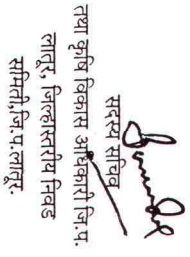 सदस्य सचिव
तथा कृषि विकास अधिकारी जि.प.
लातूर, जिल्हास्तरीय निवड
समिती,जि.प.लातूर.